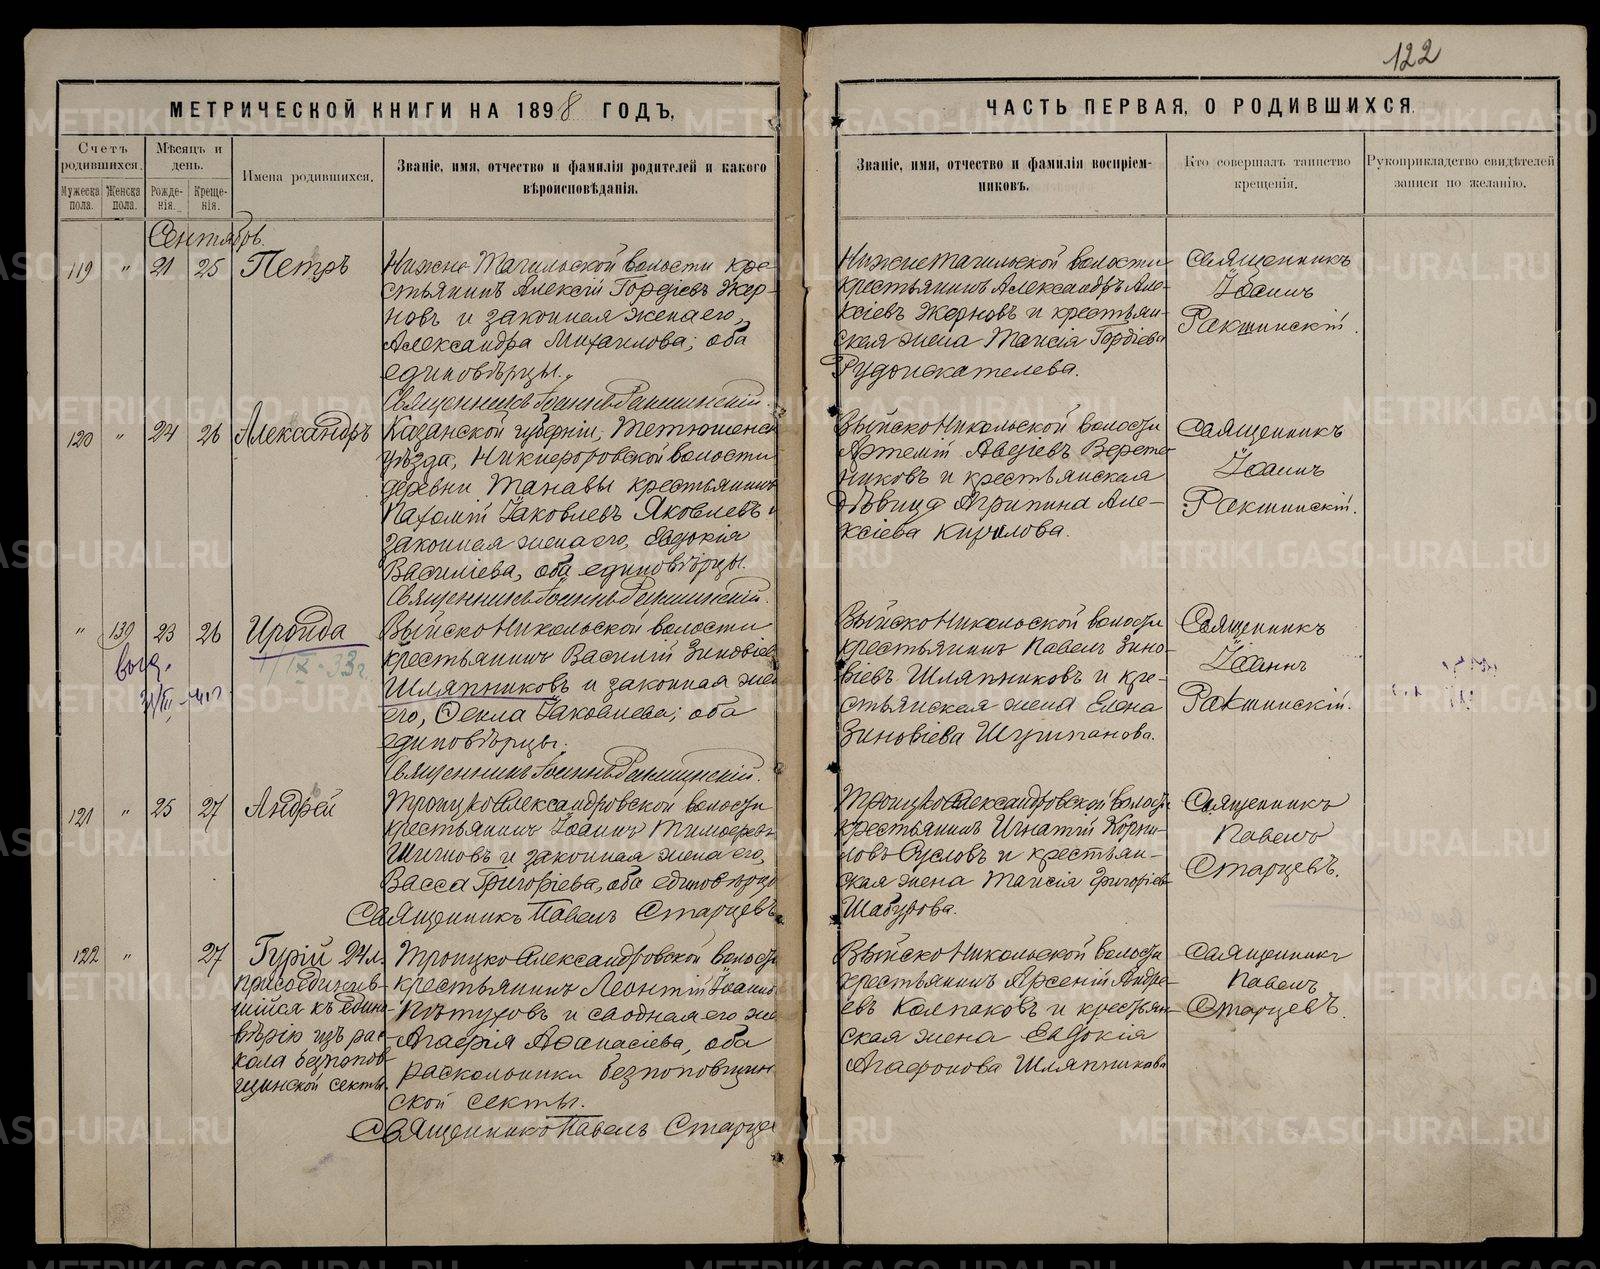 122
МЕТРИЧЕСКОЙ КНИГИ НА 1898 ГОДЪ,
ЧАСТЬ ПЕРВАЯ, О РОДИВШИХСЯ.
Счетъ родившихся.
Мужеска пола.
Женска пола.
Мѣсяцъ и день.
Рожде-нія.
Креще-нія.
Имена родившихся.
Званіе, имя, отчество и фамилія родителей и какого
вѣроисповѣданія.
Званіе, имя, отчество и фамилія воспріем-
никовъ.
Кто совершалъ таинство
крещенія.
Рукоприкладство свидѣтелей
записи по желанію.
Сентябрь.
119 " 21 25 Петръ
Нижне-Тагильской волости кре-
стьянинъ Алексій Гордіевъ Жер-
новъ и законная жена его,
Александра Михаилова; оба
единовѣрцы.
Священникъ Іоаннъ Ракшинскій.
Нижнетагильской волости
крестьянинъ Александръ Але-
ксіевъ Жерновъ и крестьян-
ская жена Таисія Гордіева
Рудоискателева.
Священникъ
Іоаннъ
Ракшинскій.
120 " 24 26 Александръ
Казанской губерніи, Тетюшенск
уѣзда, Никифоровской волости
деревни Танавы крестьянинъ
Пахомій Іаковлевъ Яковлевъ и
законная жена его, Евдокія
Василіева, оба единовѣрцы.
Священникъ Іоаннъ Ракшинскій.
Выйско Никольской волости
Артемій Авдіевъ Верете-
никовъ и крестьянская
дѣвица Агрипина Але-
ксіева Кирилова.
Священникъ
Іоаннъ
Ракшинскій.
" 139 23 26 Ираида
IX-33г.
Выйско Никольской волости
крестьянинъ Василій Зиновіев
Шляпниковъ и законная жен
его, Фекла Іаковлева; оба
единовѣрцы.
Священникъ Іоаннъ Ракшинскій.
Выйско Никольской волости
крестьянинъ Павелъ Зино-
віевъ Шляпниковъ и кре-
стьянская жена Елена
Зиновіева Шурипанова.
Священникъ
Іоаннъ
Ракшинскій.
121 " 25 27 Андрей
Троицко Александровской волости
крестьянинъ Іоаннъ Тимофеевъ
Шишовъ и законная жена его,
Васса Григоріева, оба единовѣрцы
Священникъ Павелъ Старцевъ
Троицко Александровской волости
крестьянинъ Игнатій Корни-
ловъ Сусловъ и крестьян-
ская жена Таисія Григоріев
Шабурова.
Священникъ
Павелъ
Старцевъ.
122 " 27 Гурій 24 л.
присоединив-
шійся къ едино-
вѣрію изъ рас-
кола безпопов-
щинской секты.
Троицко Александровской волости
крестьянинъ Леонтій Іоанно
Пѣтуховъ и сводная его же
Агафія Афанасіева, оба
раскольники безпоповщин
ской секты.
Священникъ Павелъ Старце
Выйско Никольской волости
крестьянинъ Арсеній Андре-
евъ Колпаковъ и крестьян-
ская жена Евдокія
Агафонова Шляпникова
Священникъ
Павелъ
Старцевъ.
METRIKI.GASO-URAL.RU